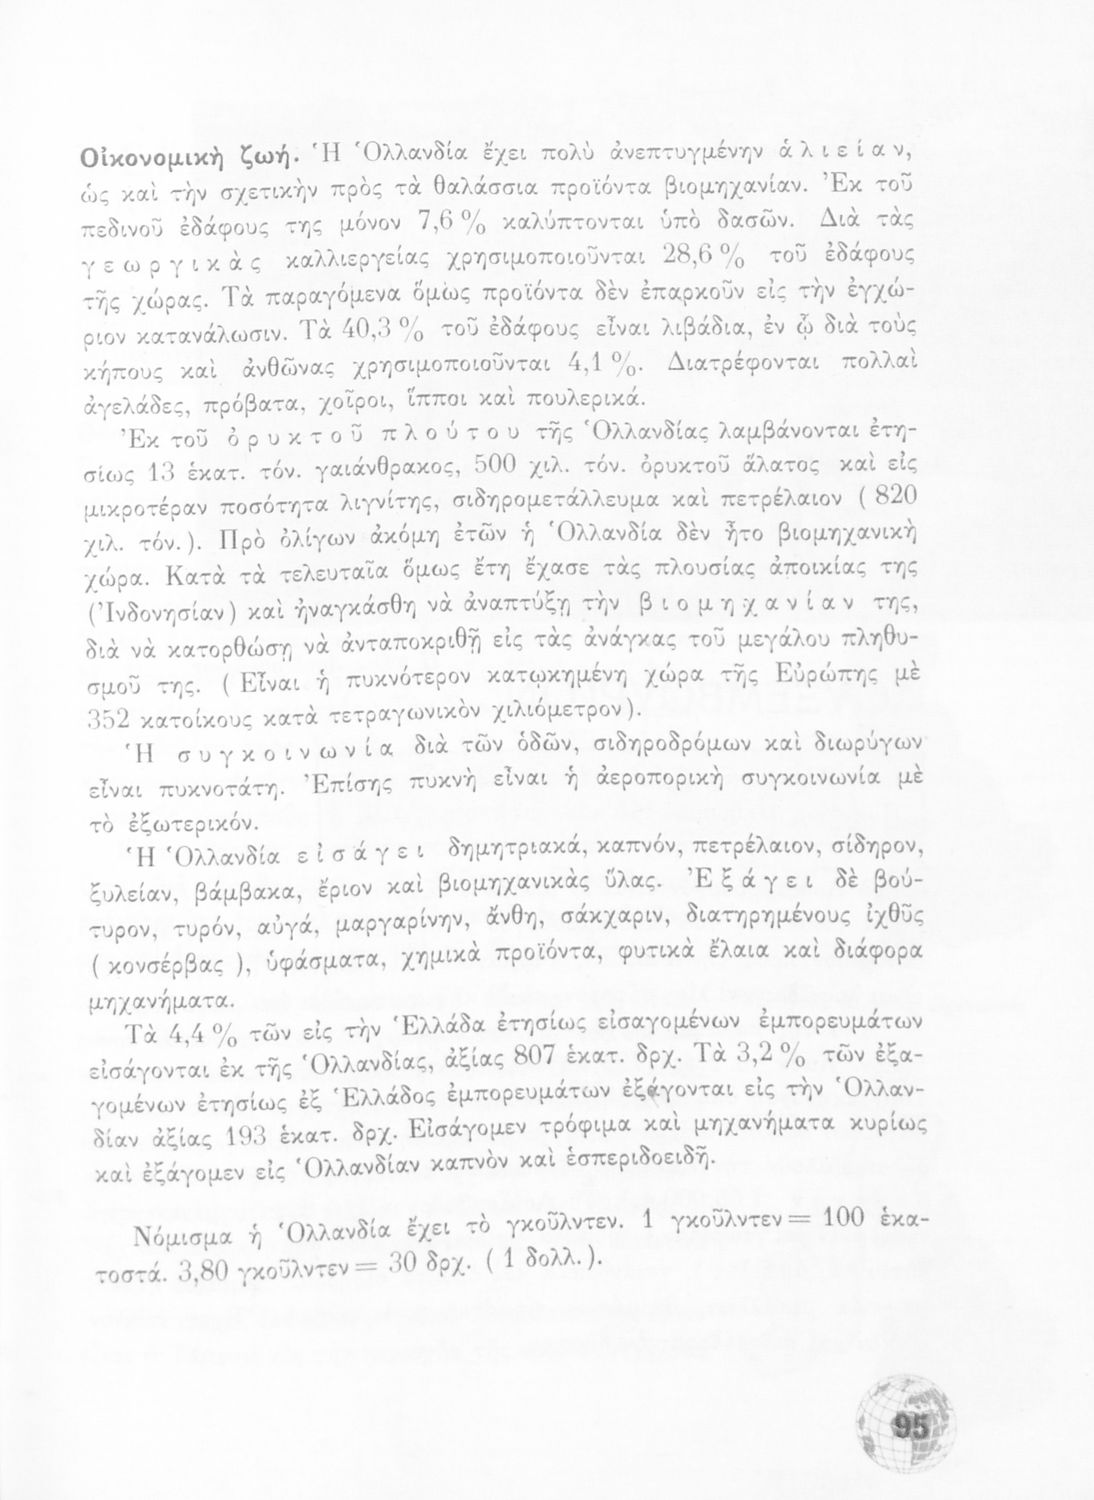 Οἰκονομικὴ ζωή. Ἡ Ὁλλανδία ἔχει πολὺ ἀνεπτυγμένην ἁλιείαν,
ὡς καὶ τὴν σχετικὴν πρὸς τὰ θαλάσσια προϊόντα βιομηχανίαν. Ἐκ τοῦ
πεδινοῦ ἐδάφους της μόνον 7,6 % καλύπτονται ὑπὸ δασῶν. Διὰ τὰς
γεωργικὰς καλλιεργείας χρησιμοποιοῦνται 28,6 % τοῦ ἐδάφους
τῆς χώρας. Τὰ παραγόμενα ὅμως προϊόντα δὲν ἐπαρκοῦν εἰς τὴν ἐγχώ-
ριον κατανάλωσιν. Τὰ 40,3 % τοῦ ἐδάφους εἶναι λιβάδια, ἐν ᾧ διὰ τοὺς
κήπους καὶ ἀνθῶνας χρησιμοποιοῦνται 4,1 %. Διατρέφονται πολλαὶ
ἀγελάδες, πρόβατα, χοῖροι, ἵπποι καὶ πουλερικά.
Ἐκ τοῦ ὀρυκτοῦ πλούτου τῆς Ὁλλανδίας λαμβάνονται ἐτη-
σίως 13 ἑκατ. τόν. γαιάνθρακος, 500 χιλ. τόν. ὀρυκτοῦ ἅλατος καὶ εἰς
μικροτέραν ποσότητα λιγνίτης, σιδηρομετάλλευμα καὶ πετρέλαιον ( 820
χιλ. τόν. ). Πρὸ ὀλίγων ἀκόμη ἐτῶν ἡ Ὁλλανδία δὲν ἦτο βιομηχανικὴ
χώρα. Κατὰ τὰ τελευταῖα ὅμως ἔτη ἔχασε τὰς πλουσίας ἀποικίας της
(Ἰνδονησίαν) καὶ ἠναγκάσθη νὰ ἀναπτύξῃ τὴν βιομηχανίαν της,
διὰ νὰ κατορθώσῃ νὰ ἀνταποκριθῇ εἰς τὰς ἀνάγκας τοῦ μεγάλου πληθυ-
σμοῦ της. ( Εἶναι ἡ πυκνότερον κατῳκημένη χώρα τῆς Εὐρώπης μὲ
352 κατοίκους κατὰ τετραγωνικὸν χιλιόμετρον).
Ἡ συγκοινωνία διὰ τῶν ὁδῶν, σιδηροδρόμων καὶ διωρύγων
εἶναι πυκνοτάτη. Ἐπίσης πυκνὴ εἶναι ἡ ἀεροπορικὴ συγκοινωνία μὲ
τὸ ἐξωτερικόν.
Ἡ Ὁλλανδία εἰσάγει δημητριακά, καπνόν, πετρέλαιον, σίδηρον,
ξυλείαν, βάμβακα, ἔριον καὶ βιομηχανικὰς ὕλας. Ἐξάγει δὲ βού-
τυρον, τυρόν, αὐγά, μαργαρίνην, ἄνθη, σάκχαριν, διατηρημένους ἰχθῦς
( κονσέρβας ), ὑφάσματα, χημικὰ προϊόντα, φυτικὰ ἔλαια καὶ διάφορα
μηχανήματα.
Τὰ 4,4 % τῶν εἰς τὴν Ἑλλάδα ἐτησίως εἰσαγομένων ἐμπορευμάτων
εἰσάγονται ἐκ τῆς Ὁλλανδίας, ἀξίας 807 ἑκατ. δρχ. Τὰ 3,2 % τῶν ἐξα-
γομένων ἐτησίως ἐξ Ἑλλάδος ἐμπορευμάτων ἐξάγονται εἰς τὴν Ὁλλαν-
δίαν ἀξίας 193 ἑκατ. δρχ. Εἰσάγομεν τρόφιμα καὶ μηχανήματα κυρίως
καὶ ἐξάγομεν εἰς Ὁλλανδίαν καπνὸν καὶ ἑσπεριδοειδῆ.
Νόμισμα ἡ Ὁλλανδία ἔχει τὸ γκοῦλντεν. 1 γκοῦλντεν = 100 ἑκα-
τοστά. 3,80 γκοῦλντεν = 30 δρχ. ( 1 δολλ. ).
95